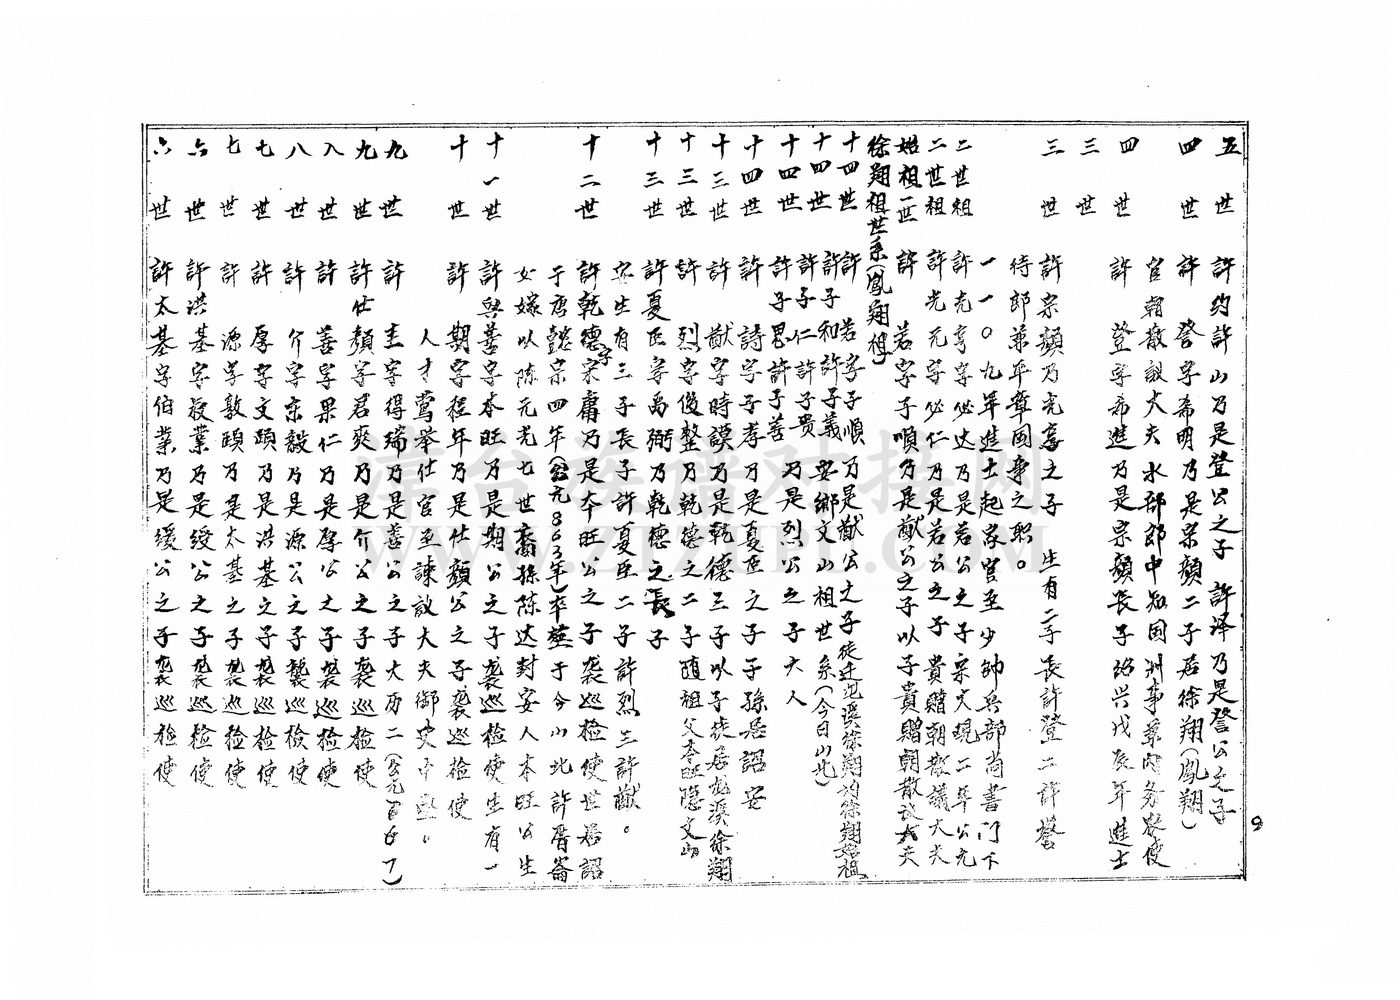 六世 許太基字伯業乃是缓公之子袭巡检使
六世 許洪基字授業乃是绶公之子袭巡检使
七世 許源字敦頤乃是太基之子袭巡检使
七世 許厚字文頤乃是洪基之子袭巡检使
八世 許介字宗毅乃是源公之子襲巡检使
八世 許善字果仁乃是厚公之子袭巡检使
九世 許仕顏字君爽乃是介公之子袭巡检使
九世 許圭字得瑞乃是善公之子大历二(公元767)
人才薦举仕官至諫议大夫御史中丞。
十世 許期字程年乃是仕顏公之子袭巡检使
十一世 許興善字本旺乃是期公之子袭巡检使生有一
女嫁以陈元光七世裔孫陈达封安人本旺公生
于唐懿宗四年(公元863年)卒塟于今山北許厝崙
十二世 許乾德字宋庸乃是本旺公之子袭巡检使世居詔
安生有三子長子許夏臣二子許烈三許猷。
十三世 許夏臣字禹弼乃乾德之長子
十三世 許烈字俊整乃乾德之二子随祖父本旺隐文山
十三世 許猷字時謨乃是乾德三子以子徙居龙溪徐翔
十四世 許詩字子孝乃是夏臣之子子孫居詔安
十四世 許子思許子善乃是烈公之子六人
十四世 許子仁許子贵
十四世 許子和許子義 安鄉文山祖世系(今日山北)
十四世 許若字子順乃是猷公之子徙迁龙溪徐翔为徐翔始祖
徐翔祖世系(鳳翔祖)
始祖一世 許若字子順乃是猷公之子以子貴贈朝散议大夫
二世祖 許光元字必仁乃是若公之子貴贈朝散議大夫
二世祖 許光亨字必达乃是若公之子宗大現二年公元
一一〇九年進士起家官至少帥兵部尚書门下
待郎兼平章国事之职。
三世 許宗顏乃光亨之子 生有二子長許登二許謽
三世
四世 許登字希進乃是宗顏長子绍兴戊辰年進士
官朝散議大夫水部郎中知国州事兼内务嶡使
四世 許謽字希明乃是宗顏二子居徐翔(鳳翔)
五世 許约許山乃是登公之子 許泽乃是謽公之子
9